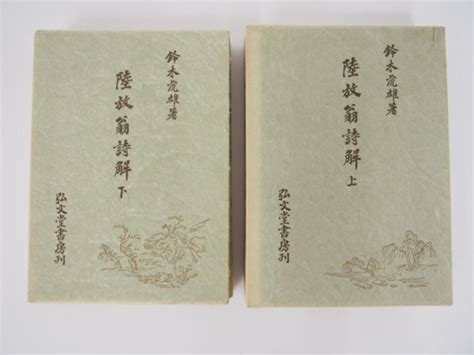 鈴木虎雄著
陸放翁詩解
上
弘文堂書房刊
鈴木虎雄著
陸放翁詩解
下
弘文堂書房刊